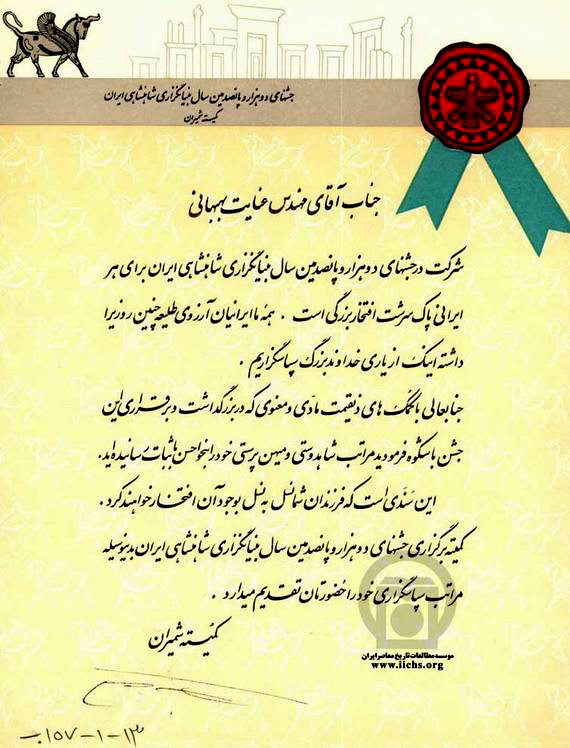 جشنهای دوهزار و پانصدمین سال بنیانگزاری شاهنشاهی ایران
کمیته شمیران
جناب آقای مهندس عنایت بهبهانی
شرکت در جشنهای دوهزار و پانصدمین سال بنیانگزاری شاهنشاهی ایران برای هر
ایرانی پاک سرشت افتخار بزرگی است . همه ما ایرانیان آرزوی طلیعه چنین روزیرا
داشته اینک از یاری خداوند بزرگ سپاسگزاریم .
جنابعالی با کمک های ذیقیمت مادی و معنوی که در بزرگداشت و برقراری این
جشن باشکوه فرمودید مراتب شاهدوستی و میهن پرستی خود را بنحو احسن باثبات رسانیده اید.
این سندی است که فرزندان شما نسل به نسل بوجود آن افتخار خواهند کرد .
کمیته برگزاری جشنهای دوهزار و پانصدمین سال بنیانگزاری شاهنشاهی ایران بدینوسیله
مراتب سپاسگزاری خود را حضورتان تقدیم میدارد .
کمیته شمیران
موسسه مطالعات تاریخ معاصر ایران
www.iichs.org
۱۵۷-۱-۱۳-ب